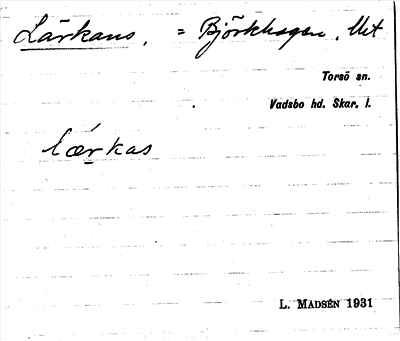 Lärkans, = Björkhagen, Ut
Torsö sn.
Vadsbo hd. Skar. l.
lǽrkas
L. MADSÉN 1931